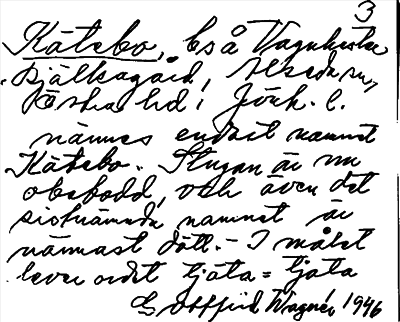 3
Kätebo, bså Vagnhester
Bjälkagård, Alseda sn,
Östra hd, Jönk. l.
nämnes endast namnet
Kätebo. Stugan är nu
obebodd, och även det
sistnämnda namnet är
närmast dött. - I målet
lever ordet tjäta = tjata
Gottfrid Wagnér 1946